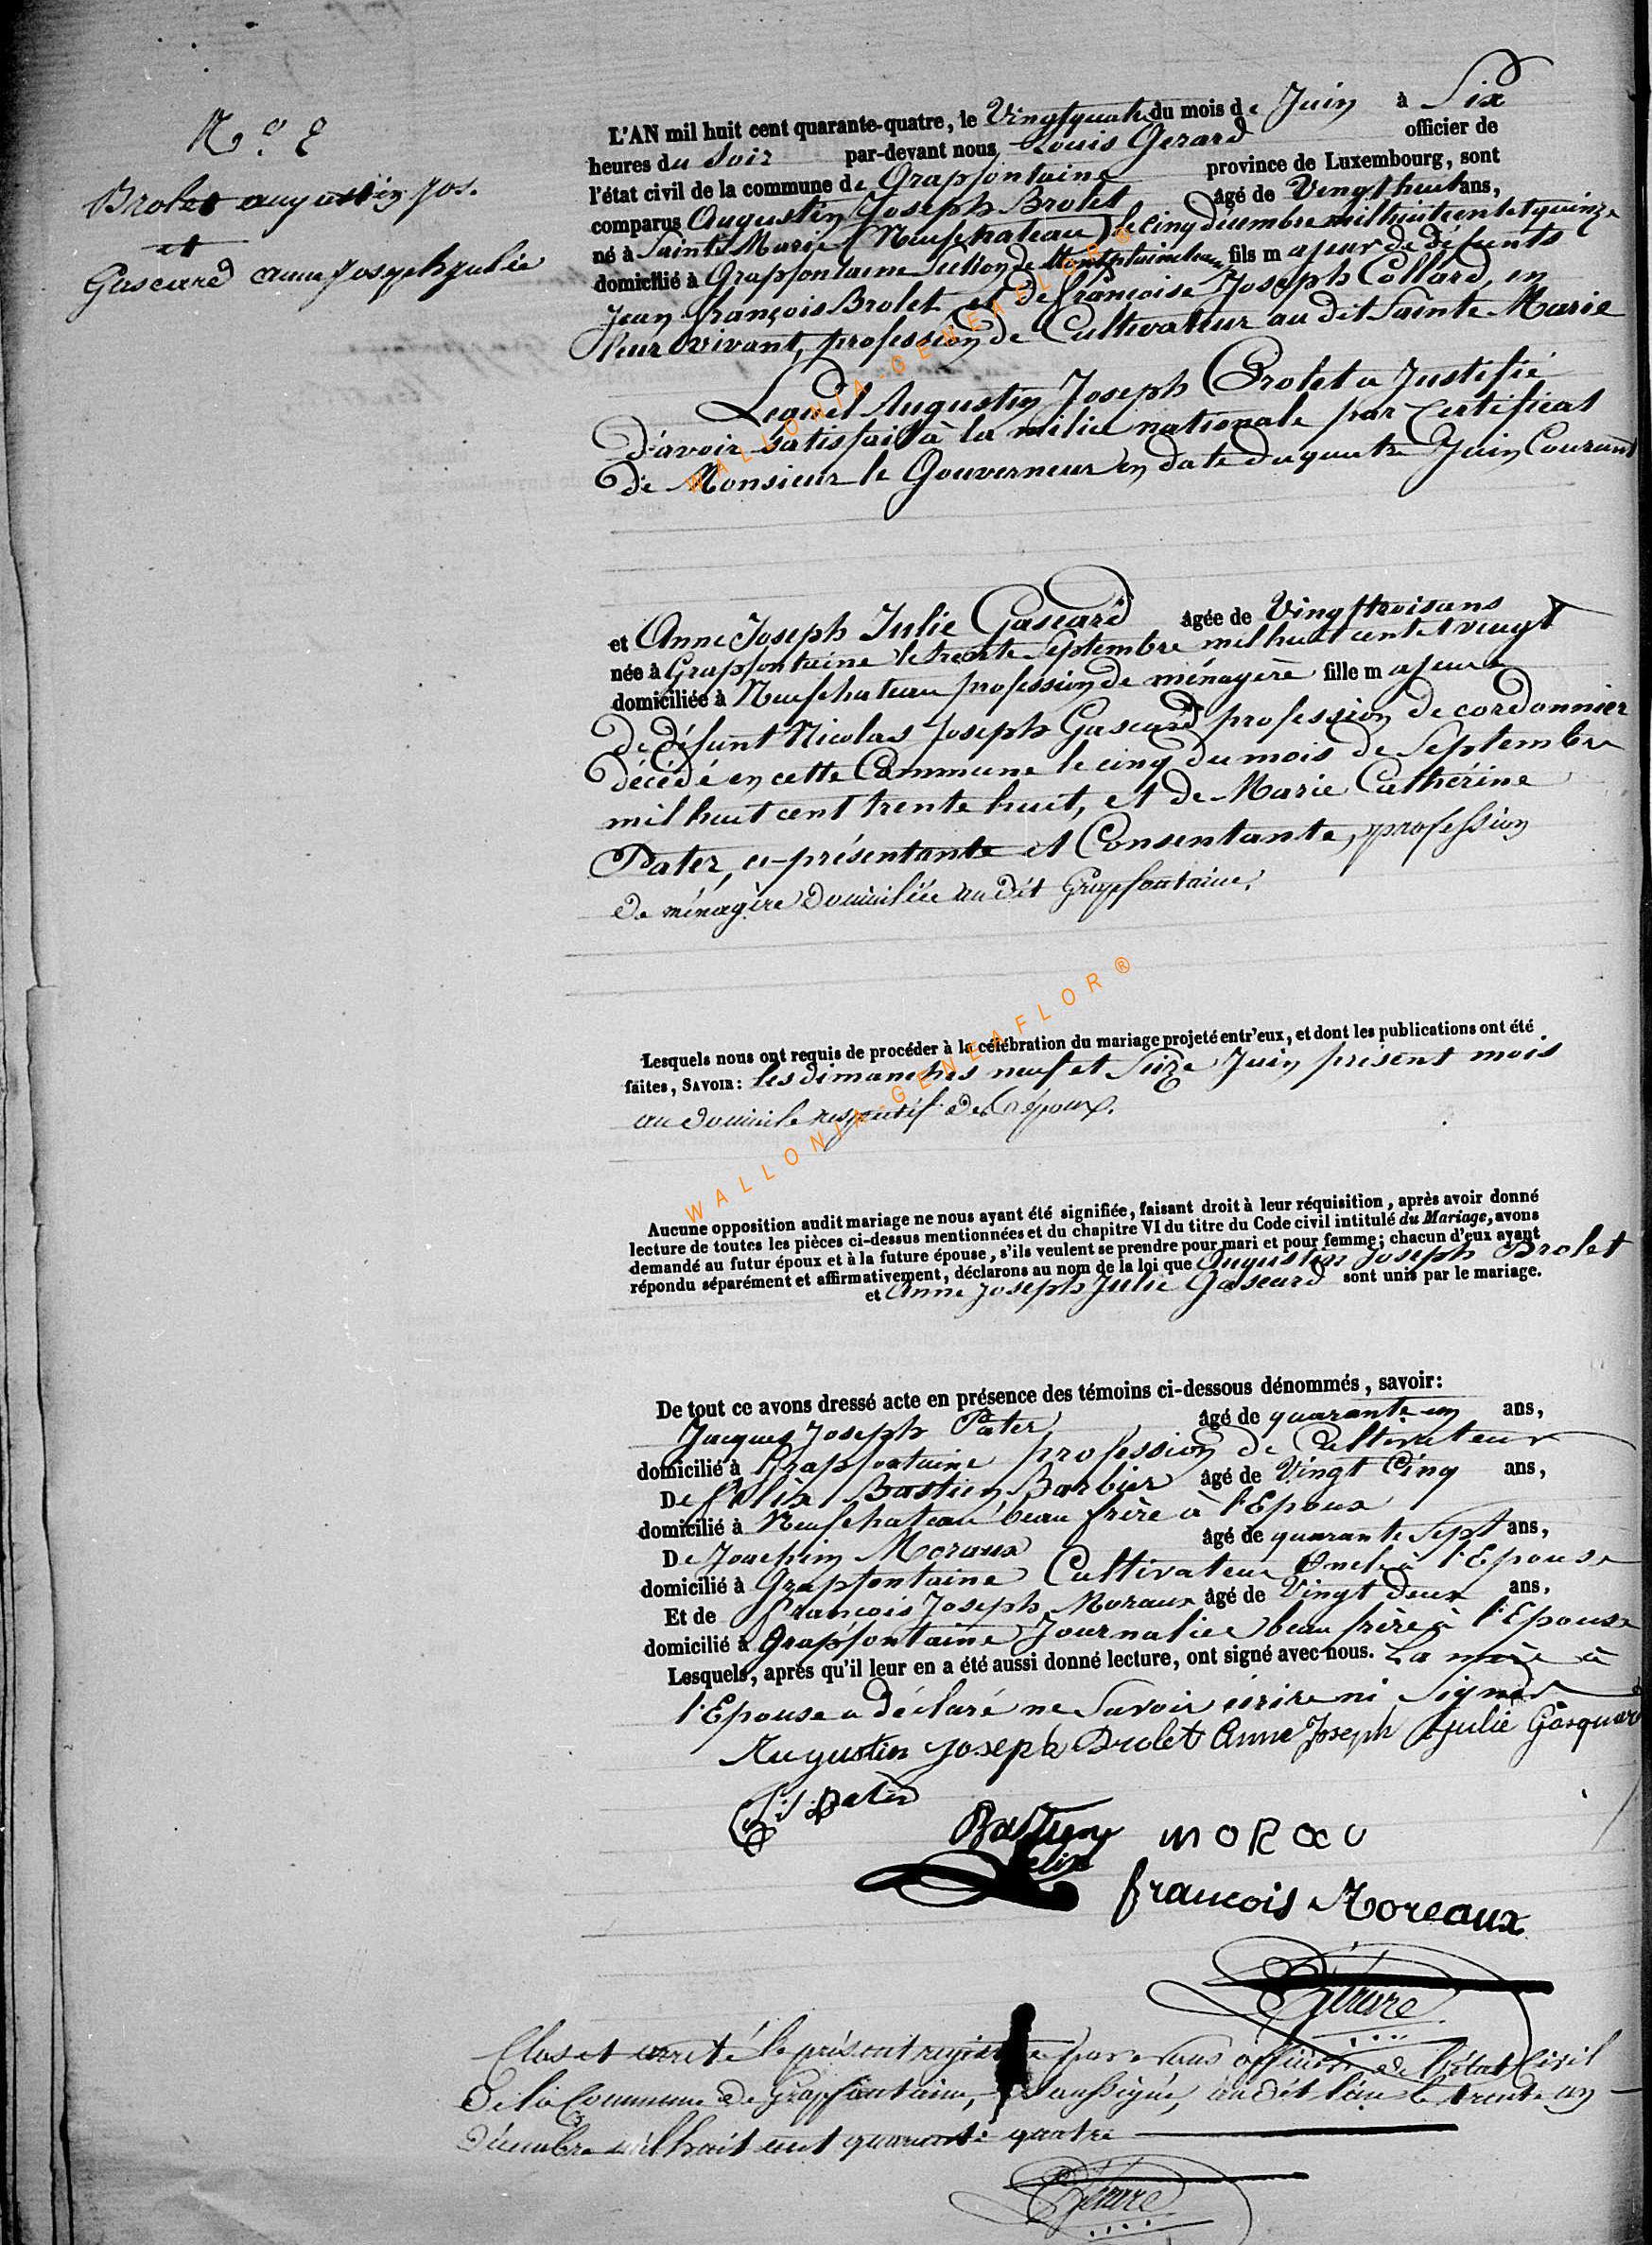 N.º 2
Brolet augustin Jos.
et
Gascard anne Josephe julie
L'AN mil huit cent quarante-quatre, le Vingt quatre du mois de Juin à Six
heures du Soir par-devant nous Louis Gerard officier de
l'état civil de la commune de Grapfontaine province de Luxembourg, sont
comparus Augustin Joseph Brolet âgé de Vingt huit ans,
né à Sainte Marie (Neufchateau) le cinq décembre mil huit cent et quinze
domicilié à Grapfontaine Section de fils majeur de défunts
Jean François Brolet et de françoise Joseph Collard, en
leur vivant, profession de Cultivateur au dit Sainte Marie
Lequel Augustin Joseph Brolet a Justifié
d'avoir satisfait à la milice nationale par Certificat
de Monsieur le Gouverneur en date du quatre Juin Courant
et Anne Joseph Julie Gascard âgée de Vingt trois ans
née à Grapfontaine le trente Septembre mil huit cent et vingt
domiciliée à Neufchateau profession de ménagère fille majeure
de défunt Nicolas Joseph Gascard profession de cordonnier
décédé en cette Commune le cinq du mois de Septembre
mil huit cent trente huit, et de Marie Cathérine
Pater, ci-présentante et Consentante, profession
de ménagère domiciliée au dit Grapfontaine.
Lesquels nous ont requis de procéder à la célébration du mariage projeté entr'eux, et dont les publications ont été
faites, SAVOIR: les dimanches neuf et Seize Juin présent mois
au domicile respectif des époux.
Aucune opposition audit mariage ne nous ayant été signifiée, faisant droit à leur réquisition, après avoir donné
lecture de toutes les pièces ci-dessus mentionnées et du chapitre VI du titre du Code civil intitulé du Mariage, avons
demandé au futur époux et à la future épouse, s'ils veulent se prendre pour mari et pour femme; chacun d'eux ayant
répondu séparément et affirmativement, déclarons au nom de la loi que Augustin Joseph Brolet
et Anne Joseph Julie Gascard sont unis par le mariage.
De tout ce avons dressé acte en présence des témoins ci-dessous dénommés, savoir:
Jacques Joseph Pater âgé de quarante un ans,
domicilié à Grapfontaine profession de Cultivateur
De félix Bastien Barbier âgé de Vingt Cinq ans,
domicilié à Neufchateau beau frère à l'Epoux
De Joachim Moraux âgé de quarante Sept ans,
domicilié à Grapfontaine Cultivateur Oncle à l'Epouse
Et de françois Joseph Moraux âgé de Vingt Deux ans.
domicilié à Grapfontaine Journalier beau frère à l'Epouse
Lesquels, après qu'il leur en a été aussi donné lecture, ont signé avec nous. La mère à
l'Epouse a déclaré ne Savoir écrire ni Signer
Augustin joseph Brolet Anne Joseph julie Gasquard
J J Pater
Bastien MORAU
felix
francois Moreaux
Gérard
Clos et arrêté le présent registre par nous officier de l'état Civil
De la Commune de Grapfontaine, Soussigné, au dit lieu le trente un
décembre mil huit cent quarante quatre
Gérard
WALLONIA-GENEAFLOR ®
WALLONIA-GENEAFLOR ®